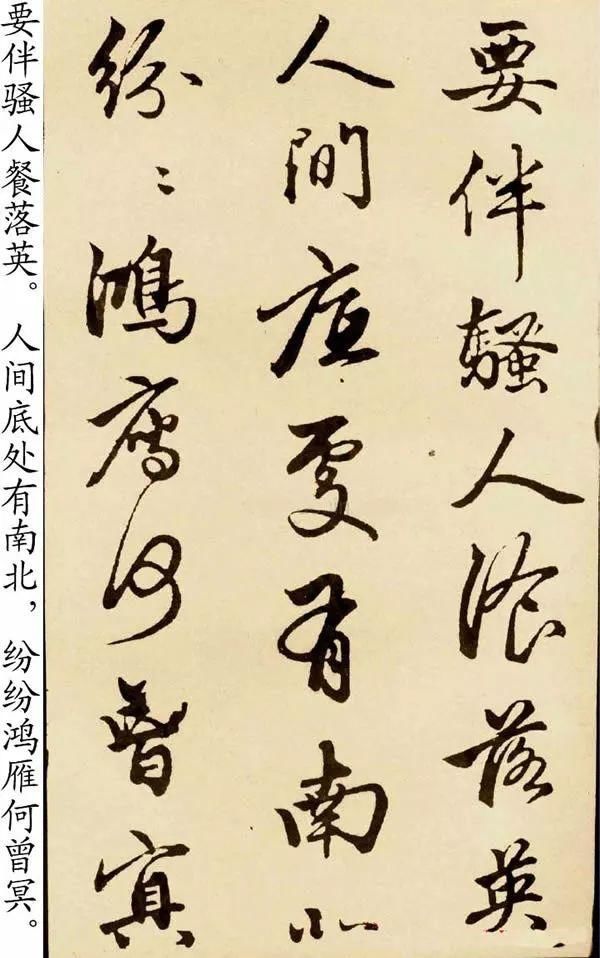 要伴騷人湌落英
人間底處有南北
紛〻鴻鴈何曾冥
要伴骚人餐落英。人间底处有南北，纷纷鸿雁何曾冥。